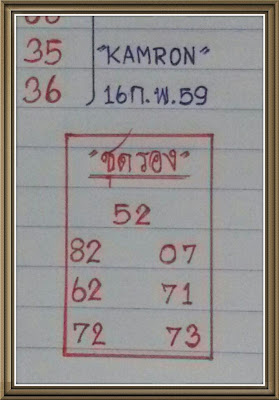 35 "KAMRON"
36 16ก.พ.59
"ชุดรอง"
52
82 07
62 71
72 73